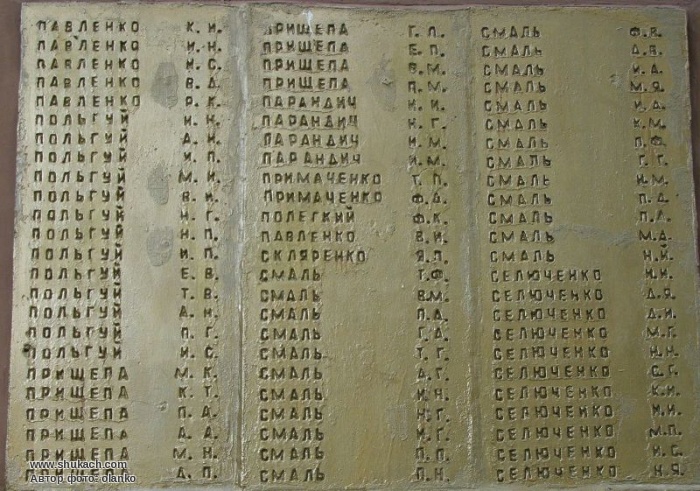 ПАВЛЕНКО К. И.
ПАВЛЕНКО И. Н.
ПАВЛЕНКО И. С.
ПАВЛЕНКО В. Д.
ПАВЛЕНКО Р. К.
ПОЛЬГУЙ Н. Н.
ПОЛЬГУЙ А. И.
ПОЛЬГУЙ И. П.
ПОЛЬГУЙ М. И.
ПОЛЬГУЙ В. И.
ПОЛЬГУЙ Н. Г.
ПОЛЬГУЙ Н. П.
ПОЛЬГУЙ И. П.
ПОЛЬГУЙ Е. В.
ПОЛЬГУЙ Т. В.
ПОЛЬГУЙ А. Н.
ПОЛЬГУЙ П. Г.
ПОЛЬГУЙ И. С.
ПРИЩЕПА М. К.
ПРИЩЕПА К. Т.
ПРИЩЕПА П. А.
ПРИЩЕПА А. А.
ПРИЩЕПА М. Н.
ПРИЩЕПА Д. П.
ПРИЩЕПА Г. П.
ПРИЩЕПА Е. П.
ПРИЩЕПА В. М.
ПРИЩЕПА П. М.
ПАРАНДИЧ И. И.
ПАРАНДИЧ Н. Г.
ПАРАНДИЧ И. М.
ПАРАНДИЧ И. М.
ПРИМАЧЕНКО Т. П.
ПРИМАЧЕНКО Ф. Д.
ПОЛЕГКИЙ Ф. К.
ПАВЛЕНКО В. И.
СКЛЯРЕНКО Я. П.
СМАЛЬ Т. Ф.
СМАЛЬ В. М.
СМАЛЬ П. Д.
СМАЛЬ Г. А.
СМАЛЬ Т. Г.
СМАЛЬ А. Г.
СМАЛЬ И. Н.
СМАЛЬ Н. Г.
СМАЛЬ И. Г.
СМАЛЬ П. П.
СМАЛЬ П. Н.
СМАЛЬ Ф. В.
СМАЛЬ Д. В.
СМАЛЬ И. Д.
СМАЛЬ М. Я.
СМАЛЬ И. Д.
СМАЛЬ К. М.
СМАЛЬ П. Ф.
СМАЛЬ Г. Г.
СМАЛЬ И. М.
СМАЛЬ П. Д.
СМАЛЬ П. Л.
СМАЛЬ М. Д.
СМАЛЬ Н. И.
СЕЛЮЧЕНКО И. И.
СЕЛЮЧЕНКО Д. Я.
СЕЛЮЧЕНКО Д. И.
СЕЛЮЧЕНКО М. Г.
СЕЛЮЧЕНКО Н. Н.
СЕЛЮЧЕНКО С. Г.
СЕЛЮЧЕНКО К. И.
СЕЛЮЧЕНКО И. И.
СЕЛЮЧЕНКО М. П.
СЕЛЮЧЕНКО С. И.
СЕЛЮЧЕНКО Н. Я.
www.shukach.com
Автор фото: olanko